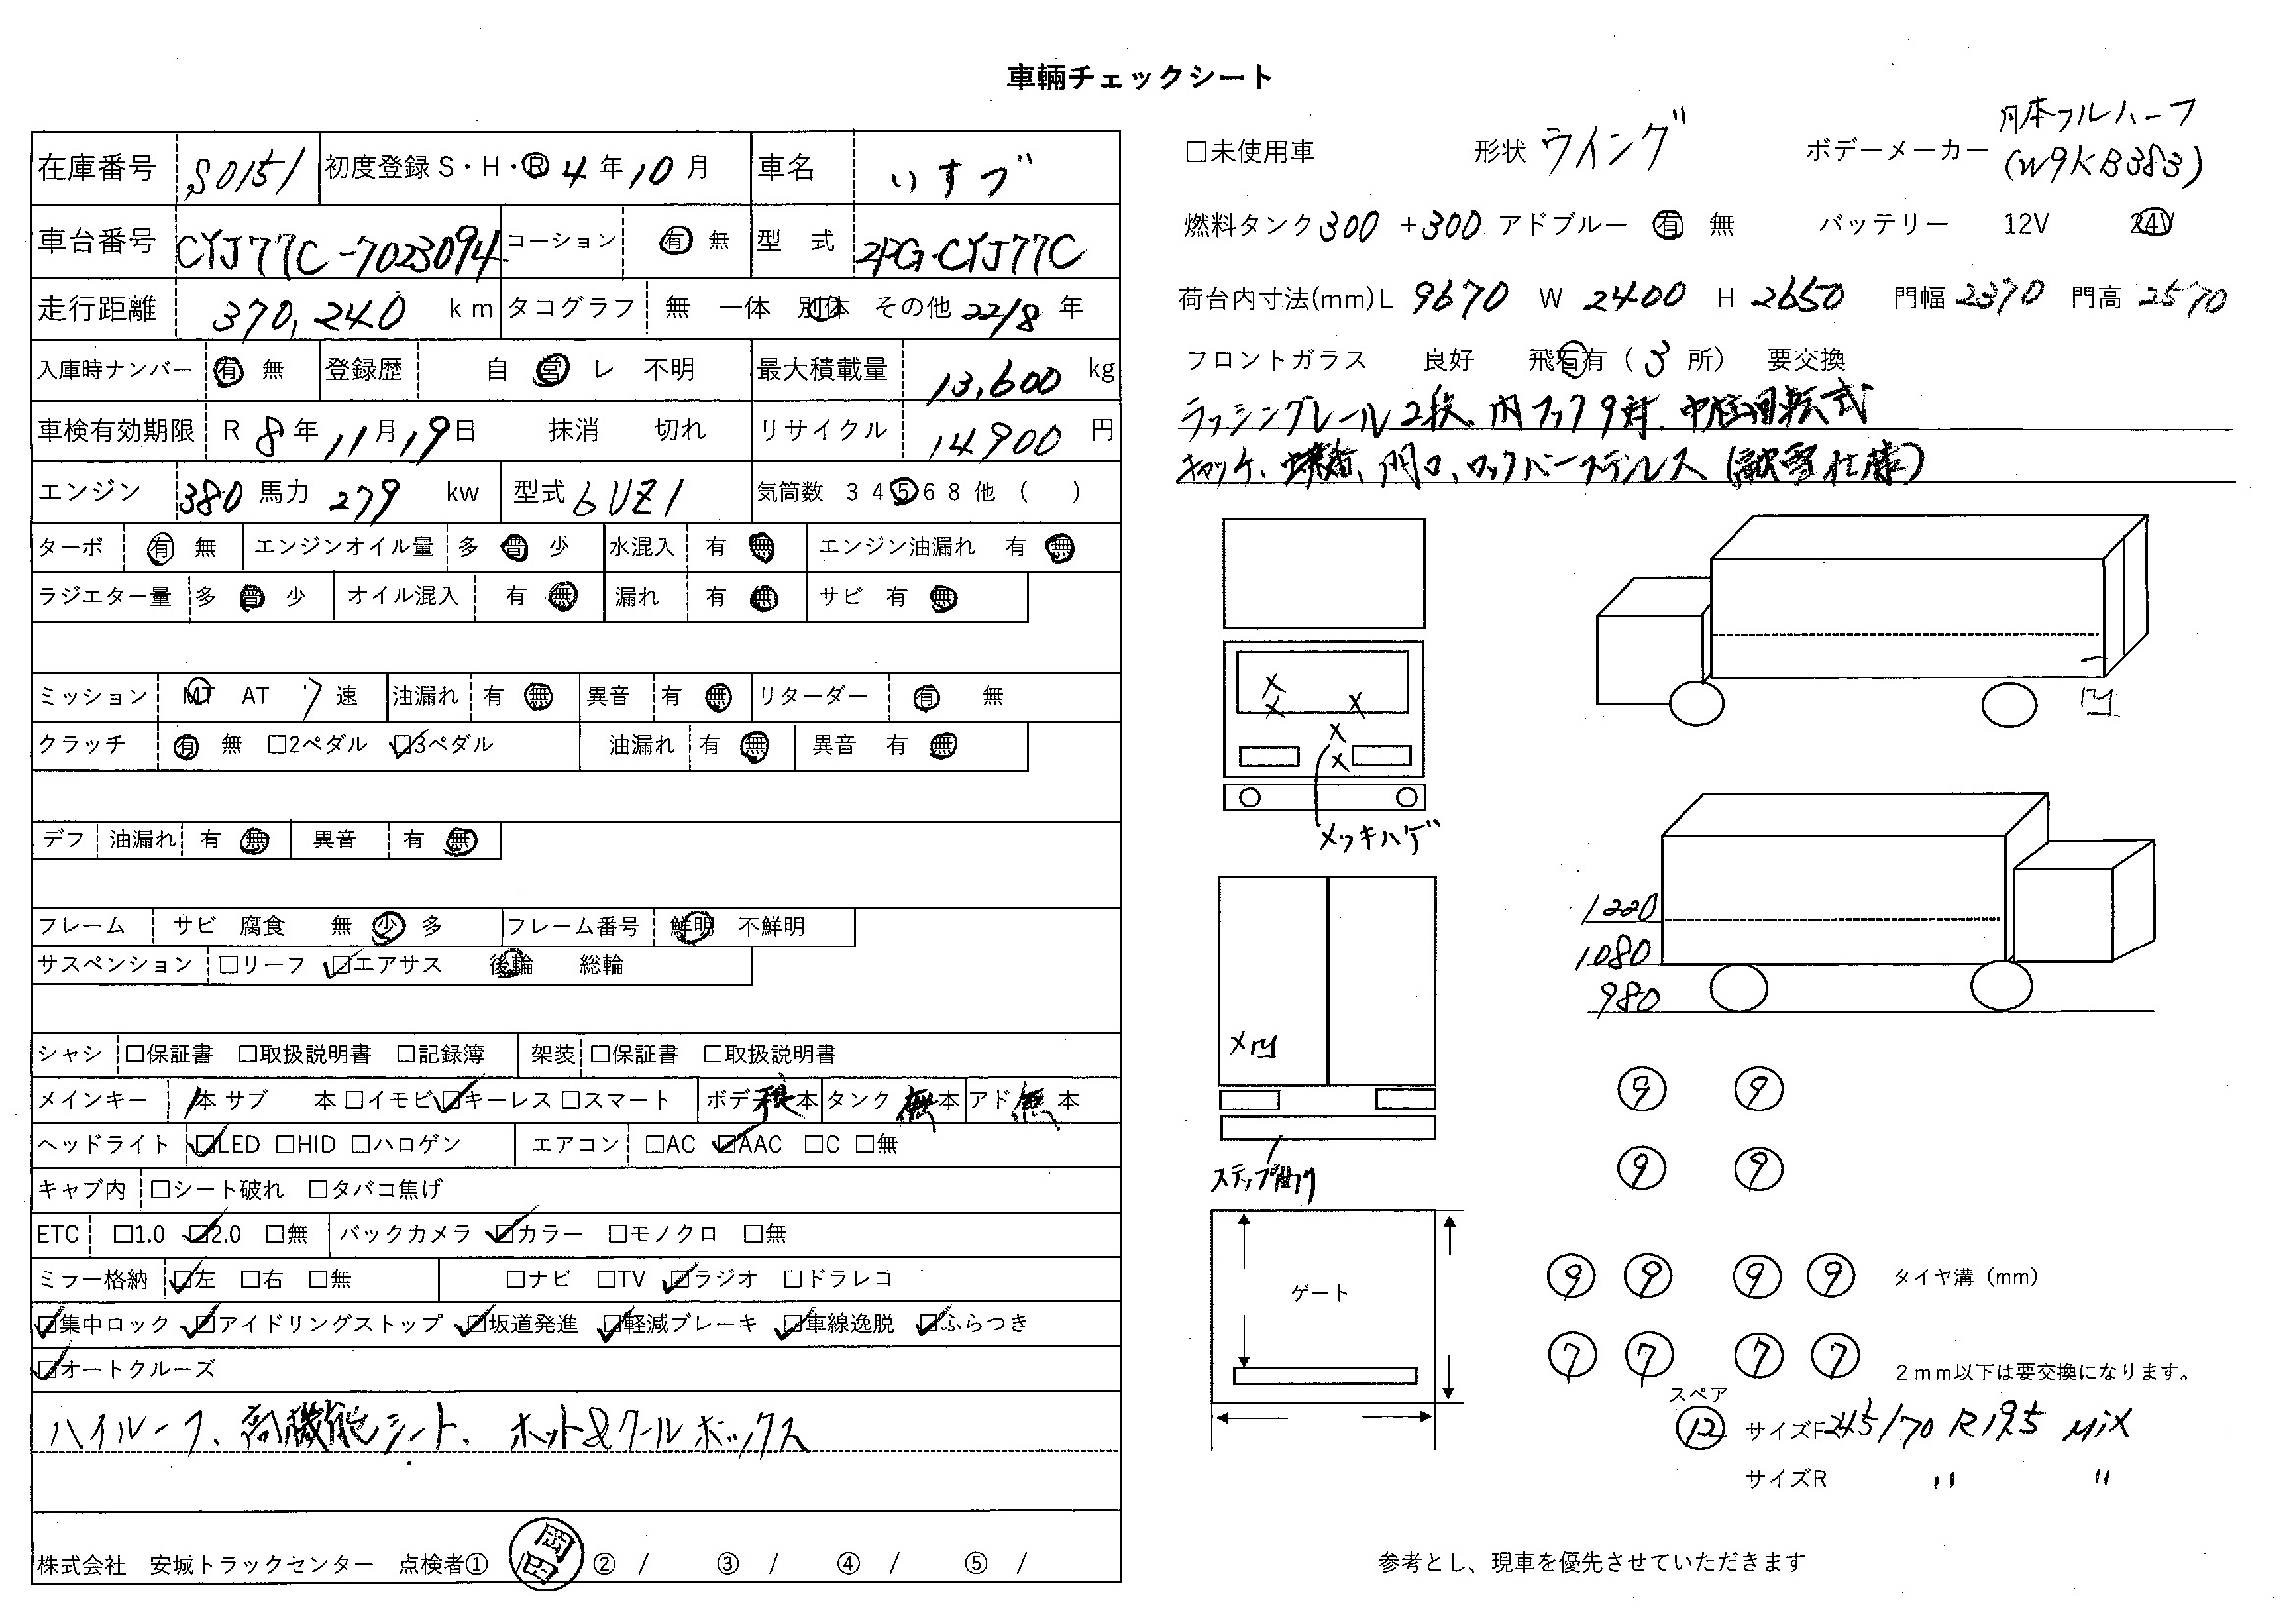 車輛チェックシート
在庫番号 S0151 初度登録 S・H・R 4 年 10 月 車名 いすゞ
車台番号 CYJ77C-7023094 コーション 有 無 型 式 2PG-CYJ77C
走行距離 370,240 km タコグラフ 無 一体 別体 その他 22/8 年
入庫時ナンバー 有 無 登録歴 自 営 レ 不明 最大積載量 13,600 kg
車検有効期限 R 8 年 11 月 19 日 抹消 切れ リサイクル 14900 円
エンジン 380 馬力 279 kw 型式 6UZ1 気筒数 3 4 5 6 8 他 ( )
ターボ 有 無 エンジンオイル量 多 普 少 水混入 有 無 エンジン油漏れ 有 無
ラジエター量 多 普 少 オイル混入 有 無 漏れ 有 無 サビ 有 無
ミッション MT AT 7 速 油漏れ 有 無 異音 有 無 リターダー 有 無
クラッチ 有 無 □2ペダル ☑3ペダル 油漏れ 有 無 異音 有 無
デフ 油漏れ 有 無 異音 有 無
フレーム サビ 腐食 無 少 多 フレーム番号 鮮明 不鮮明
サスペンション □リーフ ☑エアサス 後輪 総輪
シャシ □保証書 □取扱説明書 □記録簿 架装 □保証書 □取扱説明書
メインキー 1本 サブ 本 □イモビ ☑キーレス □スマート ボデ 本 タンク 無 本 アド 無 本
ヘッドライト ☑LED □HID □ハロゲン エアコン □AC ☑AAC □C □無
キャブ内 □シート破れ □タバコ焦げ
ETC □1.0 ☑2.0 □無 バックカメラ ☑カラー □モノクロ □無
ミラー格納 ☑左 □右 □無 □ナビ □TV ☑ラジオ □ドラレコ
☑集中ロック ☑アイドリングストップ ☑坂道発進 ☑軽減ブレーキ ☑車線逸脱 ☑ふらつき
☑オートクルーズ
ハイルーフ、高機能シート、ホット&クールボックス
株式会社 安城トラックセンター 点検者① 岡田 ② / ③ / ④ / ⑤ /
□未使用車 形状 ウイング ボデーメーカー 日本フルハーフ
(W9KB383)
燃料タンク 300 +300 アドブルー 有 無 バッテリー 12V 24V
荷台内寸法(mm) L 9670 W 2400 H 2650 門幅 2370 門高 2570
フロントガラス 良好 飛石有 ( 3 所) 要交換
ラッシングレール2段、内フック9対、中柱回転式
門口、ロックバーステンレス (融雪仕様)
凹
メッキハゲ
1220
1080
980
X凹
ステップ曲り
ゲート
9 9
9 9
9 9 9 9 タイヤ溝 (mm)
7 7 7 7 2mm以下は要交換になります。
スペア
12 サイズF 245/70 R19.5 MIX
サイズR 〃 〃
参考とし、現車を優先させていただきます